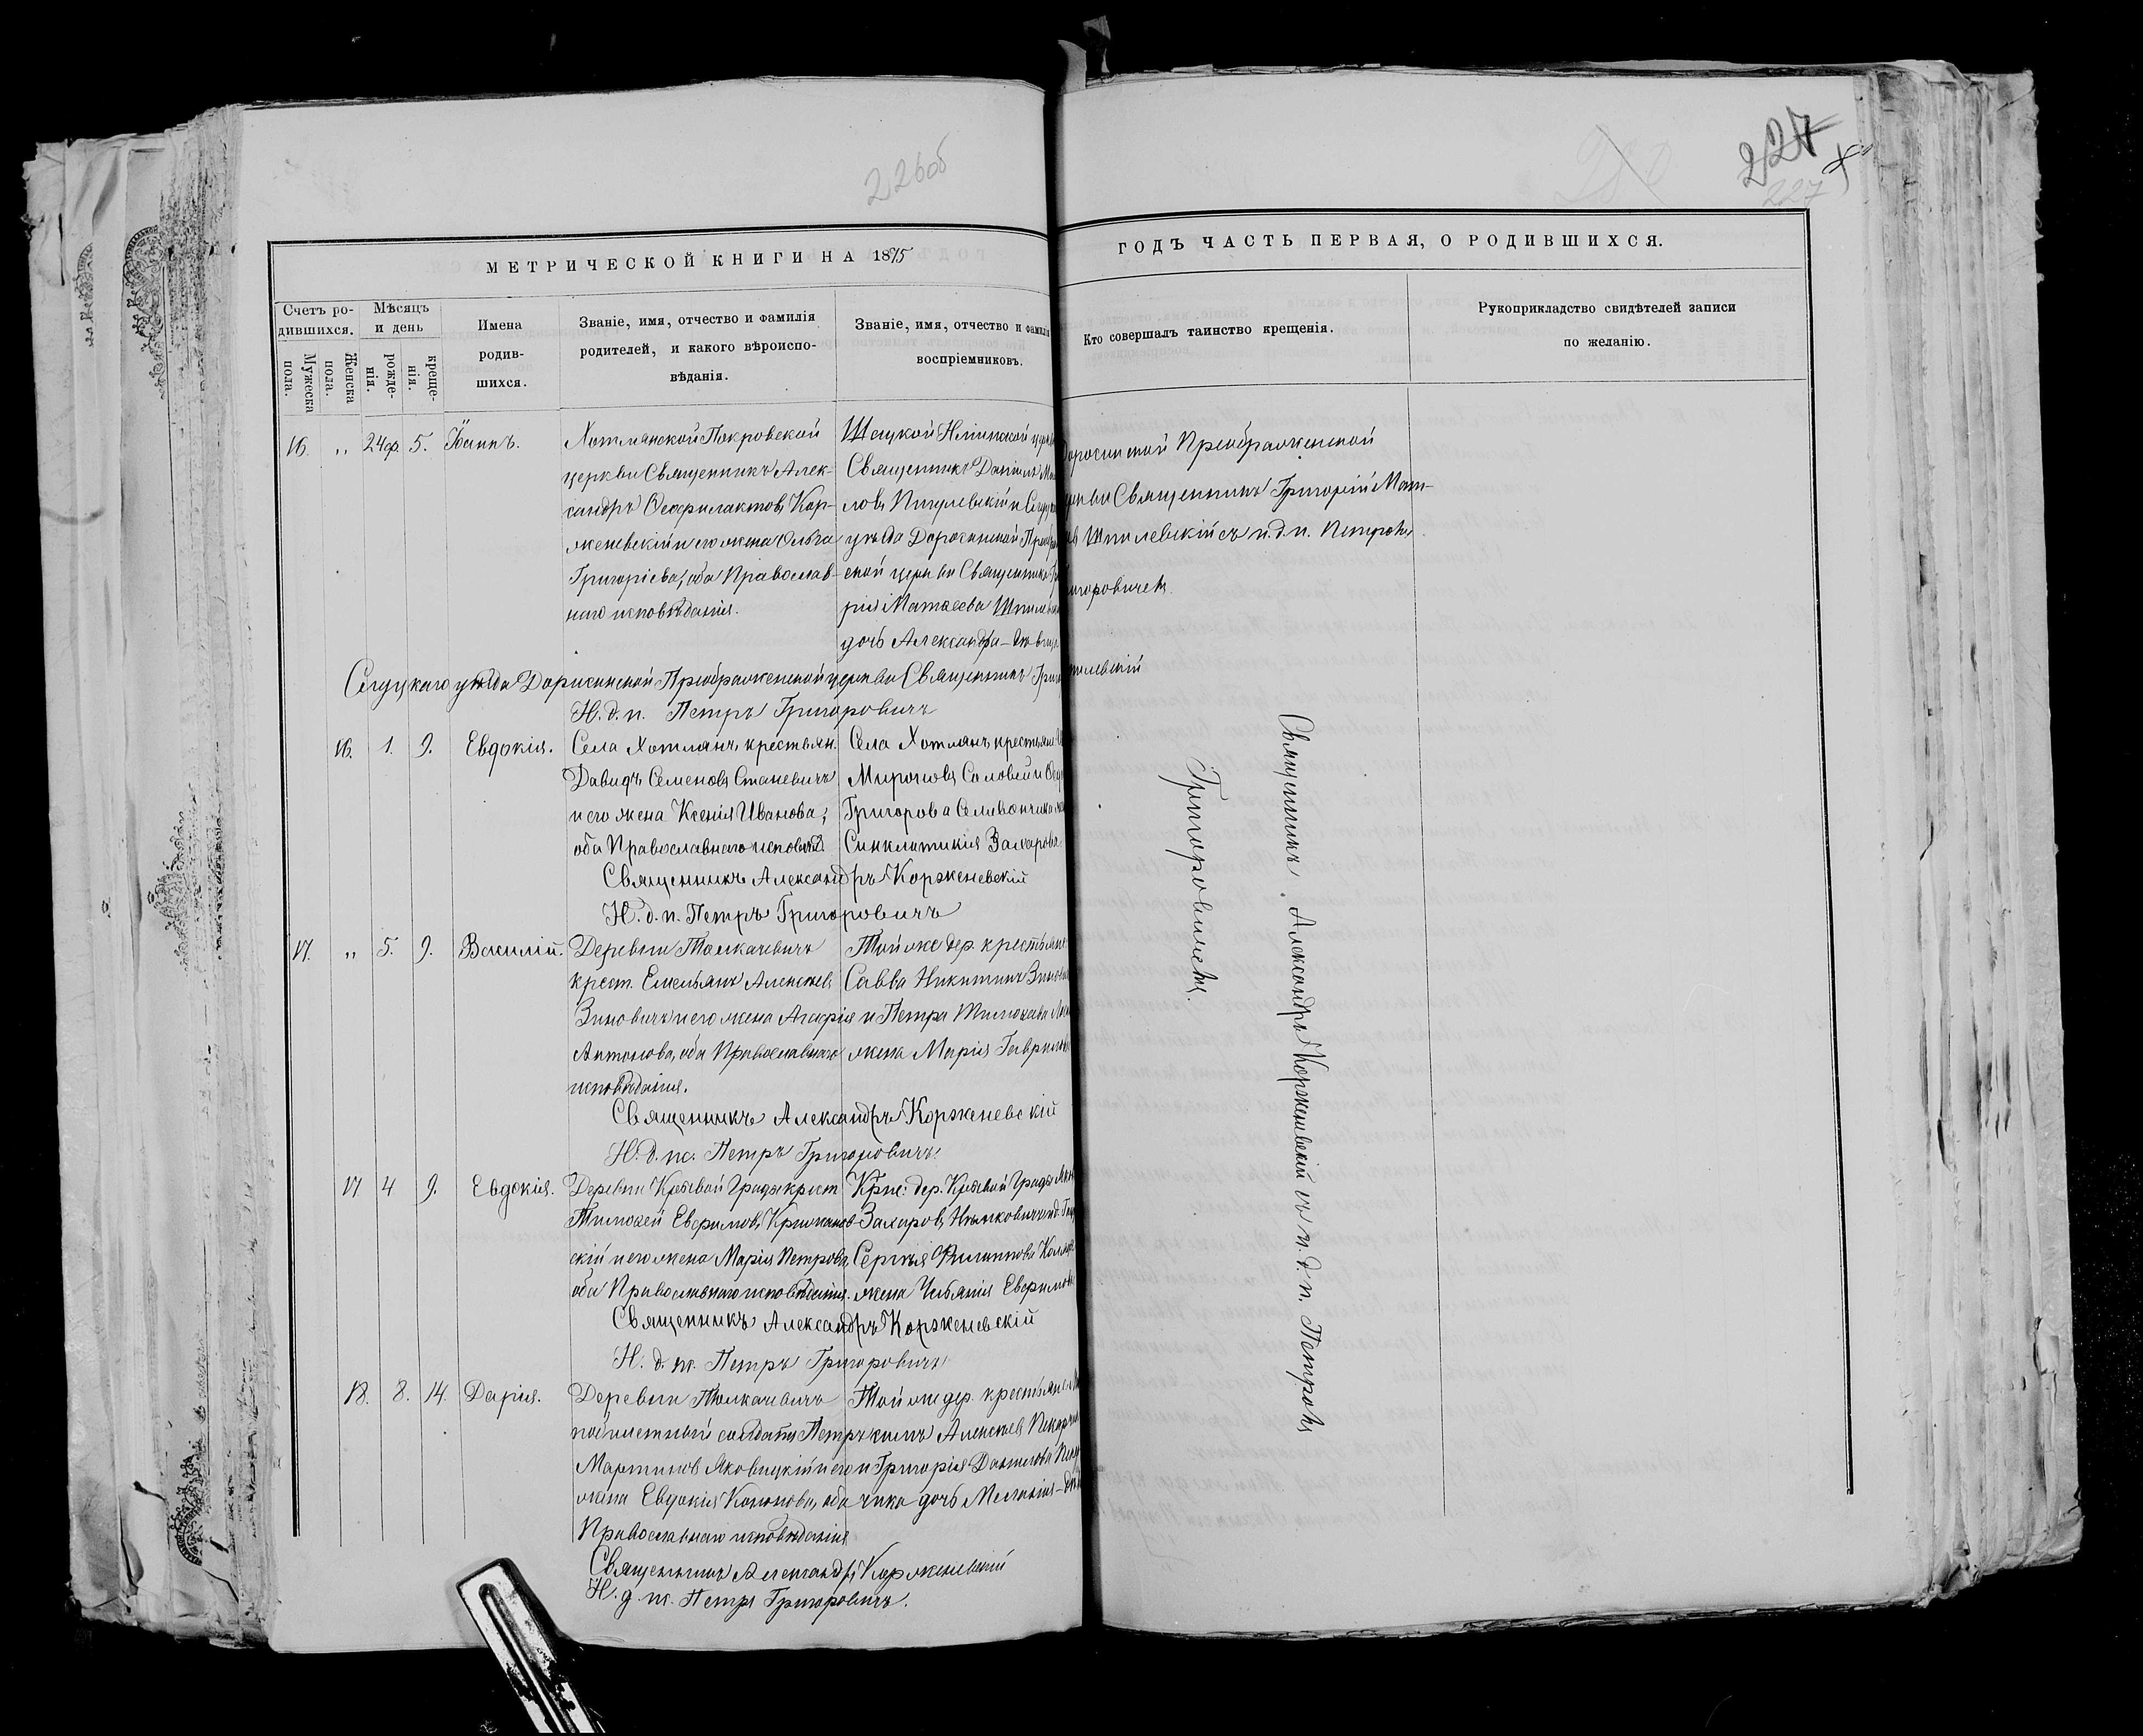 226об
227
227
МЕТРИЧЕСКОЙ КНИГИ НА 1875
ГОДЪ ЧАСТЬ ПЕРВАЯ, О РОДИВШИХСЯ.
Счетъ ро-
дившихся.
Мужеска
пола.
Женска
пола.
Мѣсяцъ
и день
рожде-
нія.
креще-
нія.
Имена
родив-
шихся.
Званіе, имя, отчество и фамилія
родителей, и какого вѣроиспо-
вѣданія.
Званіе, имя, отчество и фамилія
воспріемниковъ.
Кто совершалъ таинство крещенія.
Рукоприкладство свидѣтелей записи
по желанію.
16. „ 24ф. 5. Іоаннъ.
Хотлянской Покровской
церкви Священникъ Алек-
сандръ Ѳеофилактовъ Кор-
женевскій и его жена Ольга
Григоріева, оба Православ-
наго исповѣданія.
Шацкой церкви
Священникъ Даніилъ
ловъ Пигулевскій и
уѣзда Доросинской
ской церкви Священника
рія Матѳеева
дочь Александра - дѣвица
Доросинской Преображенской
церкви Священникъ Григорій Мат-
Шпилевскій съ и.д.п. Петромъ
Григоровичемъ.
Слуцкаго уѣзда Доросинской Преображенской церкви Священникъ
Шпилевскій
И. д. п. Петръ Григоровичъ
16. 1. 9. Евдокія.
Села Хотлянъ, крестьян.
Давидъ Семеновъ Станевичъ
и его жена Ксенія Иванова,
оба Православнаго исповѣд.
Села Хотлянъ, крестьяне
Мироновъ Соловей и
Григорова Селивончика
Синклитикія Захарова.
Священникъ Александръ Корженевскій
И. д. п. Петръ Григоровичъ
17. „ 5. 9. Василій.
Деревни Толкачевичъ
крест. Емельянъ Алексѣевъ
Зиновичъ и его жена Агафія
Антонова, оба Православнаго
исповѣданія.
Той же дер. крестьяне
Савва Никитинъ
и Петра Тимоѳеева
жена Марія
Священникъ Александръ Корженевскій
И. д. п. Петръ Григоровичъ.
17 4 9. Евдокія.
Деревни Кривой Грады крест
Тимоѳей Евфимовъ
скій и его жена Марія Петрова,
оба Православнаго исповѣданія.
Крес: дер. Кривой Грады
Захаровъ
Сергѣя Филиппова
жена Ульянія Евфимова
Священникъ Александръ Корженевскій
И. д. п. Петръ Григоровичъ
18. 8. 14. Дарія.
Деревни Толкачевичъ
солдатъ Петръ
Мартиновъ Яковицкій и его
жена Евдокія Кононова, оба
Православнаго исповѣданія
Той же дер. крестьяне
Алексѣевъ
и Григорія Данилова
чика дочь Меланія - дѣвица
Священникъ Александръ Корженевскій
И. д. п. Петръ Григоровичъ.
Священникъ Александръ Корженевскій съ и. д. п. Петромъ
Григоровичемъ.